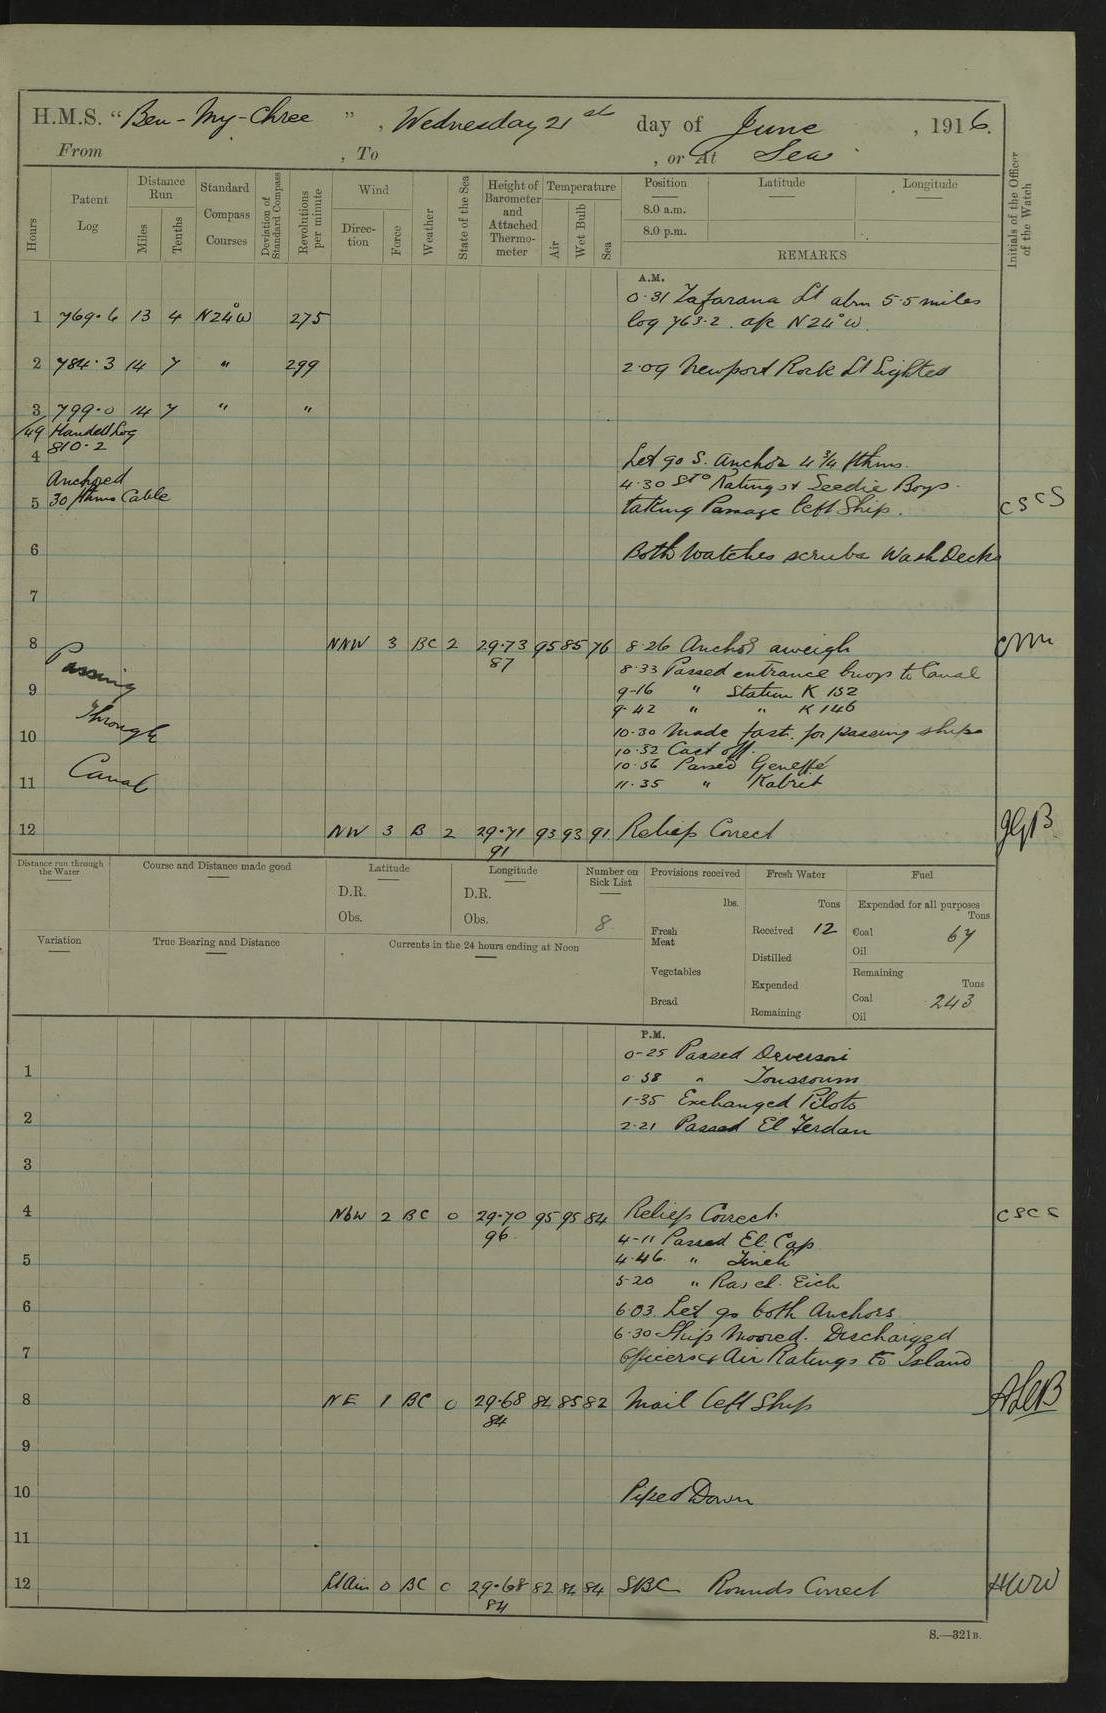 H.M.S. "Ben-My-Chree", Wednesday 21st day of June, 1916.
From , To , or At Sea
Hours
Patent Log
Distance Run
Miles
Tenths
Standard Compass Courses
Deviation of Standard Compass
Revolutions per minute
Wind
Direction
Force
Weather
State of the Sea
Height of Barometer and Attached Thermometer
Temperature
Air
Wet Bulb
Sea
Position Latitude Longitude
8.0 a.m.
8.0 p.m.
REMARKS
Initials of the Officer of the Watch
A.M.
0.31 Zafarana Lt abm 5.5 miles
1 769.6 13 4 N24°W 275 log 763.2. a/c N24°W.
2 784.3 14 7 " 299 2.09 Newport Rock Lt Sighted
3 799.0 14 7 " "
/49 Handed Log
4 810.2
Let go S. Anchor 4 3/4 fthms.
Anchored
4.30 Sto Ratings & Seedie Boys
5 30 fthms Cable taking Passage left Ship. CSCS
6 Both Watches scrubs Wash Decks
7
8 NNW 3 BC 2 29.73 95 85 76 8.26 Anchor aweigh
87
Passing Through Canal
8.33 Passed entrance buoys to Canal
9 9-16 " Station K 152
9.42 " " K 146
10 10.30 Made fast. for passing ships
10.32 Cast off.
10.56 Passed Geneffé
11 11.35 " Kabret
12 NW 3 B 2 29.71 93 93 91 Reliefs Correct
91
Distance run through the Water
Course and Distance made good
Latitude
D.R.
Obs.
Longitude
D.R.
Obs.
Number on Sick List
8
Provisions received
lbs.
Fresh Meat
Vegetables
Bread
Fresh Water
Tons
Received 12
Distilled
Expended
Remaining
Fuel
Expended for all purposes
Tons
Coal 67
Oil
Remaining
Tons
Coal 243
Oil
Variation
True Bearing and Distance
Currents in the 24 hours ending at Noon
P.M.
0-25 Passed Deversoir
1 0.58 " Toussoum
1-35 Exchanged Pilots
2 2.21 Passed El Ferdan
3
4 NbW 2 BC 0 29.70 95 95 84 Reliefs Correct CSCS
96
4-11 Passed El. Cap
5 4.46 " Tineh
5-20 " Ras el. Eich
6 6.03 Let go both Anchors
6.30 Ship Moored. Discharged
7 Officers & Air Ratings to Island
8 NE 1 BC 0 29.68 82 85 82 Mail left Ship
84
9
10 Piped Down
11
12 0 BC 0 29.68 82 82 84 Rounds Correct HWW
84
S.—321B.